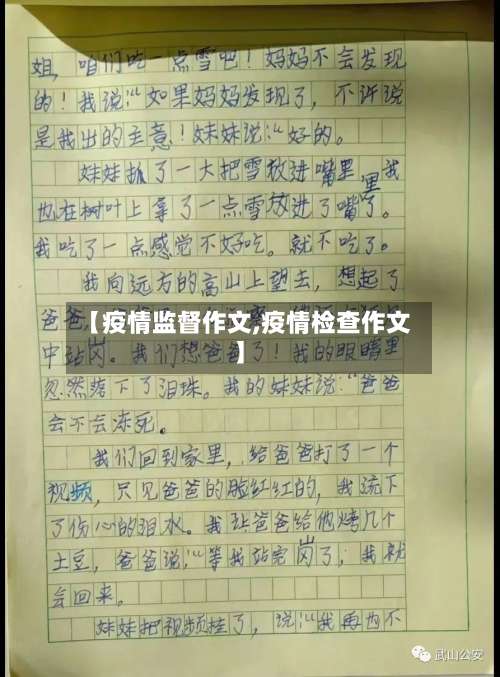 姐，咱们吃一点雪吧！妈妈不会发现
的！我说：“如果妈妈发现了，不许说
是我出的主意！妹妹说：“好的。
妹妹抓了一大把雪放进嘴里，我
里
也在树叶上拿了一点雪放进了嘴了。
我吃了一点感觉不好吃。就不吃了。
我向远方的高山上望去，想起了
爸爸
【疫情监督作文,疫情检查作文
】
中站岗。我们想爸爸了！我的眼睛里
忽然落下了泪珠。我的妹妹说：“爸爸
会不会冻死。
我们回到家里，给爸爸打了一个
视频，只见爸爸的脸红红的，我流下
了伤心的泪水。我让爸爸给他烤几个
土豆，爸爸说：“等我站完岗了，我就
会回来。
妹妹把视频挂了，说：“我再也不
武山公安